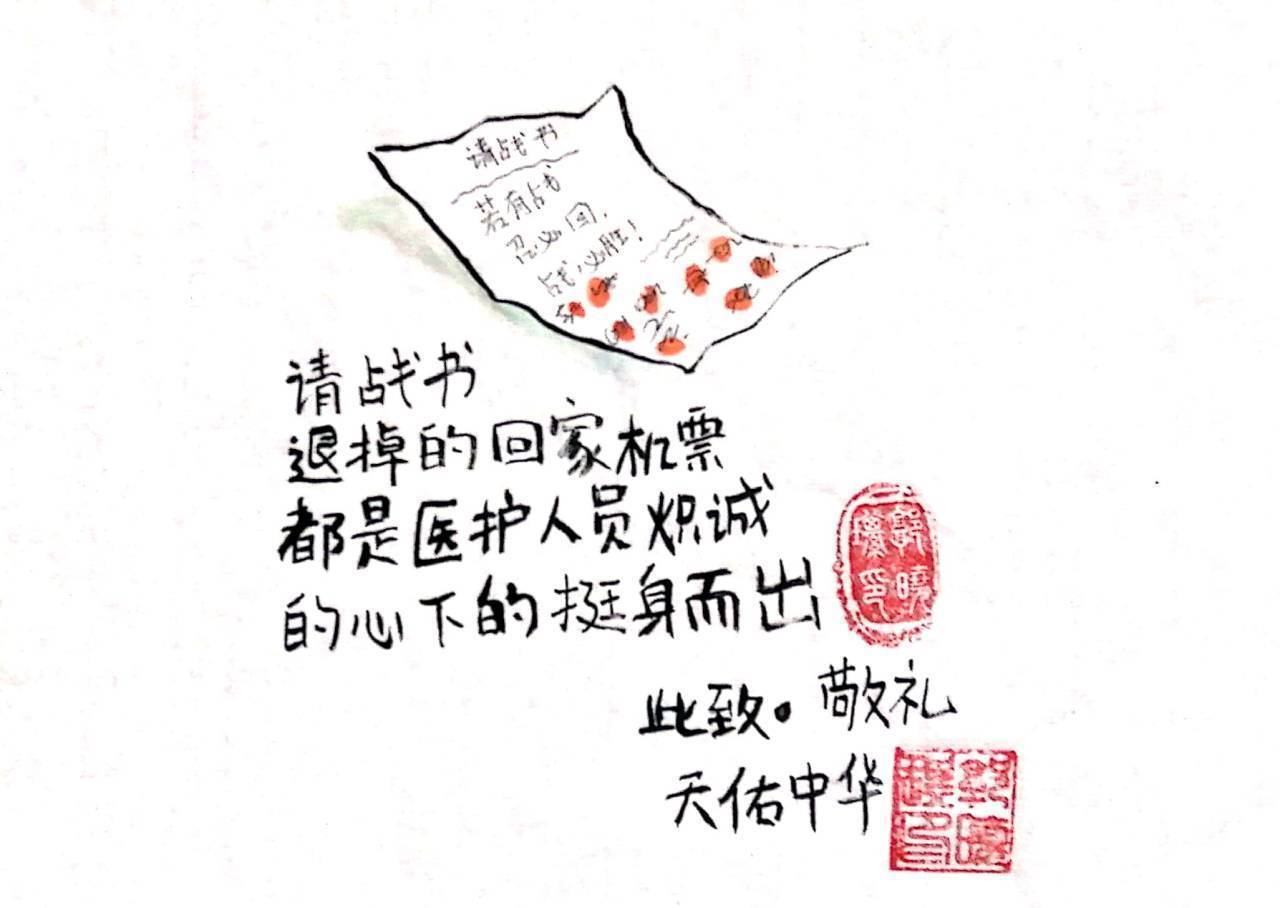 请战书
若有战
召必回,
战必胜!
请战书
退掉的回家机票
都是医护人员炽诚
的心下的挺身而出
此致。敬礼
天佑中华